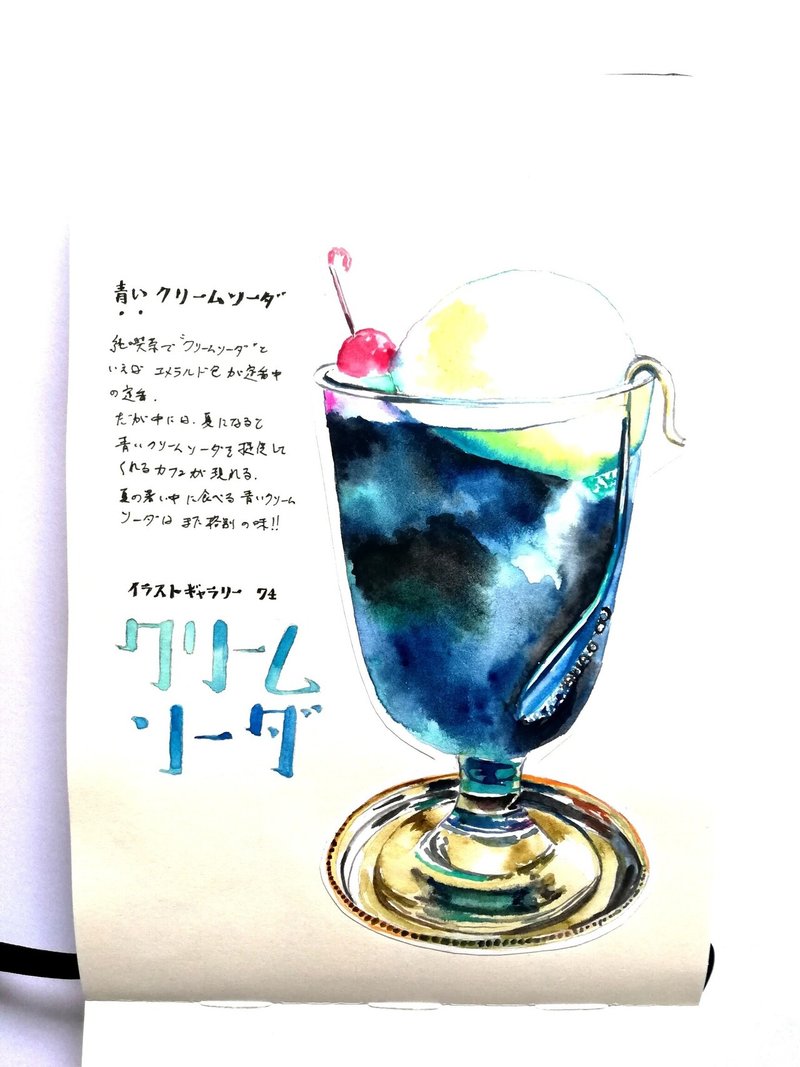 青い クリームソーダ
純喫茶で"クリームソーダ"と
いえば エメラルド色 が定番中
の定番.
だが中には、夏になると
青いクリームソーダを提供して
くれるカフェが現れる.
夏の暑い中に食べる 青いクリーム
ソーダは また格別の味!!
イラストギャラリー 74
クリーム
ソーダ